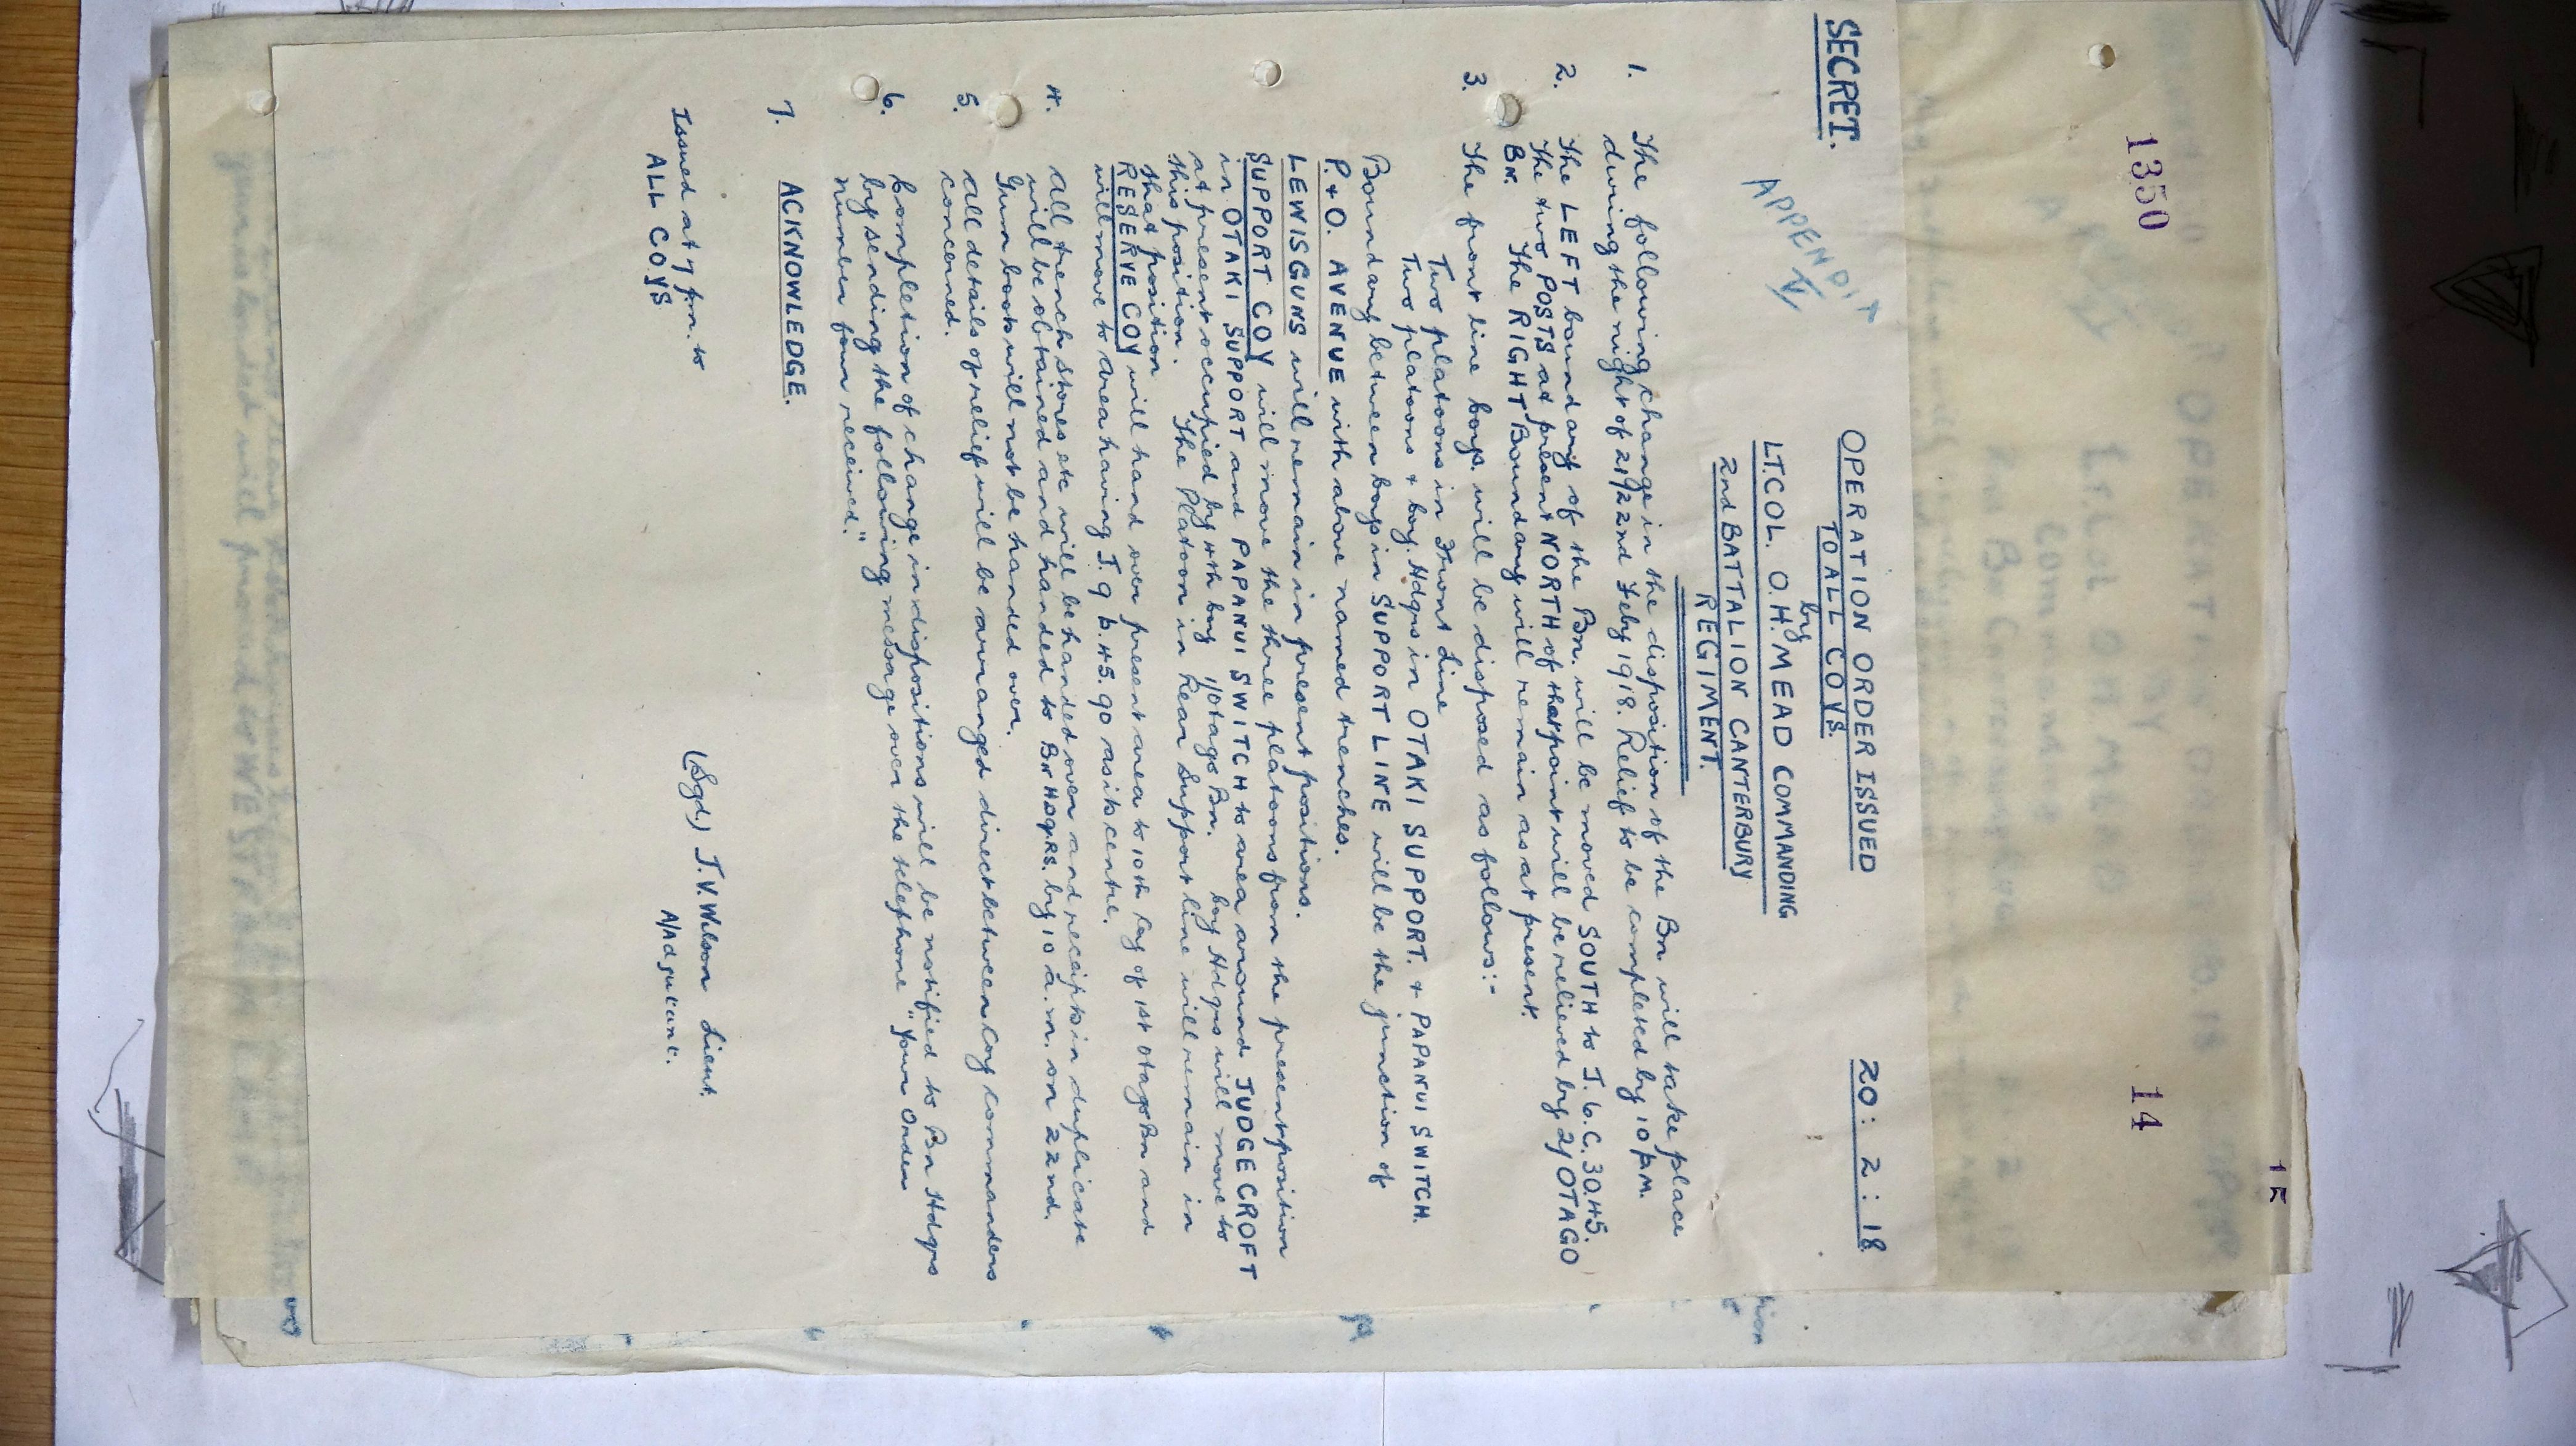 1350
14
15
SECRET.
OPERATION ORDER ISSUED
20: 2: 18
TO ALL COYS.
by
LT.COL. O.H. MEAD COMMANDING
2nd BATTALION CANTERBURY
REGIMENT.
APPENDIX
V
1. The following change in the disposition of the Bn will take place
during the night of 21/22nd Feby 1918. Relief to be completed by 10 p.m.
2. The LEFT boundary of the Bn. will be moved SOUTH to J.6.C.30.45.
The two POSTS at present NORTH of that point will be relieved by 2/OTAGO
BN. The RIGHT Boundary will remain as at present.
3. The front line Coys. will be disposed as follows:-
Two platoons in Front Line
Two platoons & Coy. Hdqrs in OTAKI SUPPORT. & PAPANUI SWITCH.
Boundary between Coys in SUPPORT LINE will be the junction of
P. & O. AVENUE with above named trenches.
LEWIS GUNS will remain in present positions.
SUPPORT COY will move the three platoons from the present position
in OTAKI SUPPORT and PAPANUI SWITCH to area around JUDGE CROFT
at present occupied by 4th Coy 1/Otago Bn. Coy Hdqrs will move to
this position. The Platoon in Rear Support line will remain in
that position
RESERVE COY will hand over present area to 10th Coy of 1st Otago Bn and
will move to area having J.9.b.45.90 as its centre.
4. All trench stores etc will be handed over and receipts in duplicate
will be obtained and handed to BN HDQRS. by 10 a.m. on 22nd.
Gum boots will not be handed over.
5. All details of relief will be arranged direct between Coy Commanders
concerned.
6. Completion of change in dispositions will be notified to Bn Hdqrs
by sending the following message over the telephone "Your Order
number four received."
7. ACKNOWLEDGE.
Issued at 7 p.m. to
ALL COYS
(Sgd) J.V. Wilson Lieut.
A/Adjutant.